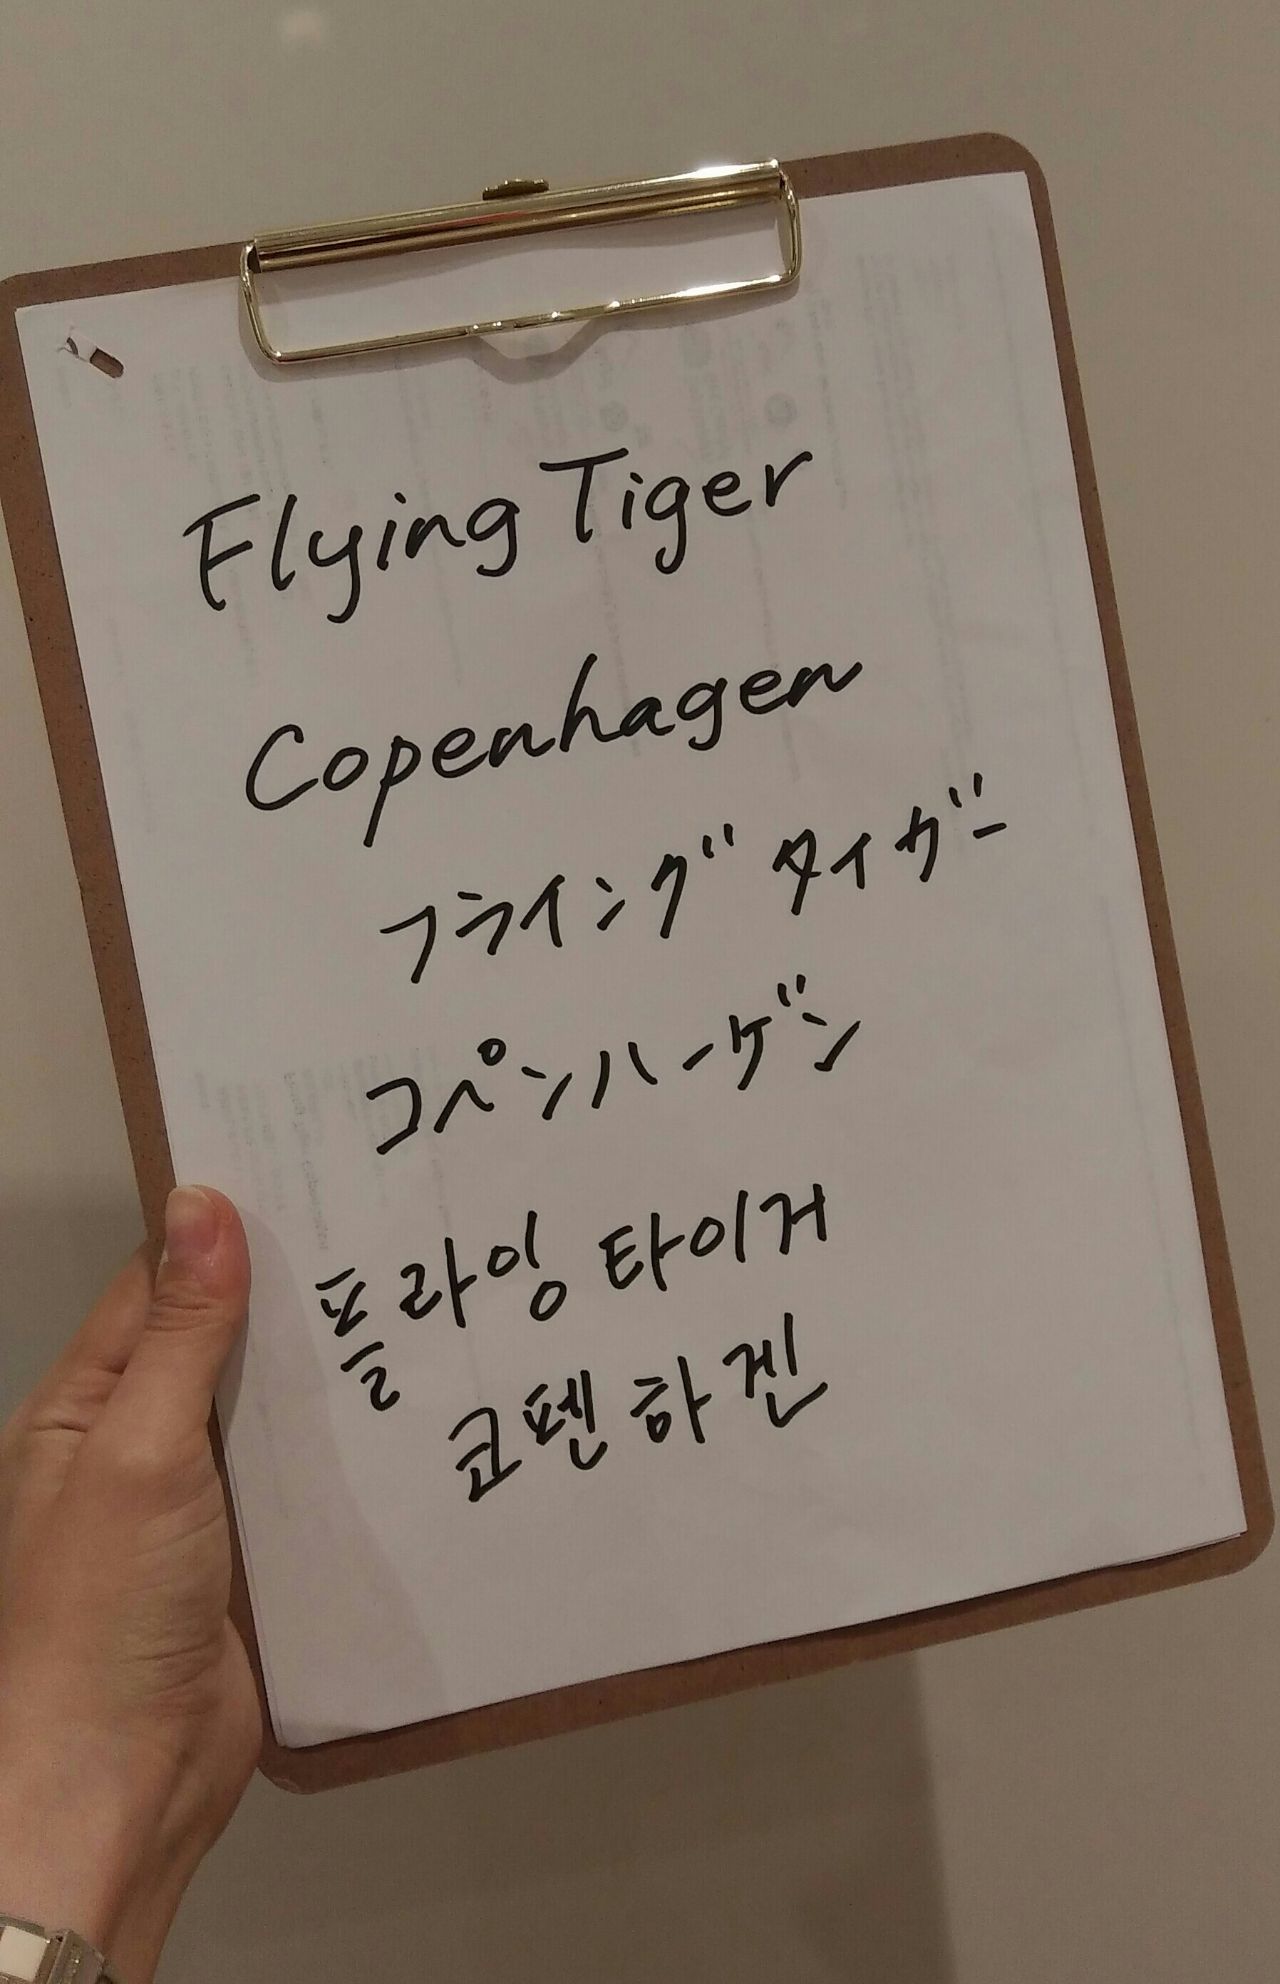 Flying Tiger
Copenhagen
フライング タイガー
コペンハーゲン
플라잉 타이거
코펜하겐